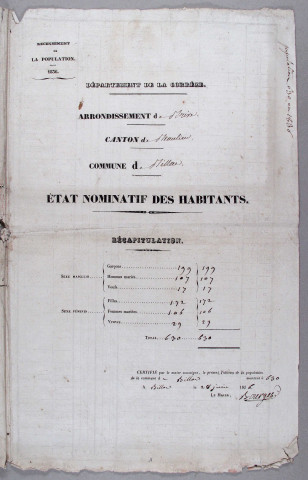 DÉNOMBREMENT
DE
LA POPULATION.
1836.
population 630 en 1836
DÉPARTEMENT DE LA CORRÈZE.
ARRONDISSEMENT de Brive
CANTON de Beaulieu
COMMUNE de Billac
ÉTAT NOMINATIF DES HABITANTS.
RÉCAPITULATION.
SEXE MASCULIN
Garçons 199 199
Hommes mariés 107 107
Veufs 17 17
SEXE FÉMININ
Filles 172 172
Femmes mariées 106 106
Veuves 29 29
TOTAL 630 630
CERTIFIÉ par le maire soussigné, le présent État de la population
de la commune de Billac montant à 630
A Billac le 28 juin 1836
LE MAIRE,